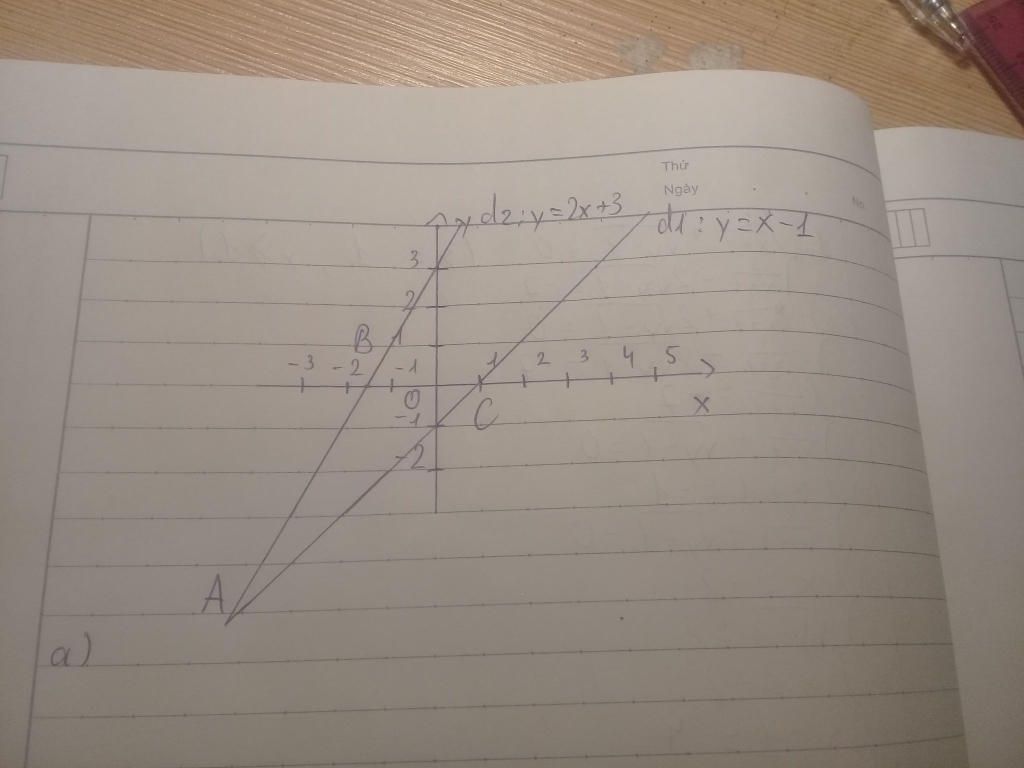 Thứ
Ngày
No.
y d2: y=2x+3
d1: y=x-1
3
2
B 1
-3 -2 -1 1 2 3 4 5
O
-1 C x
-2
A
a)